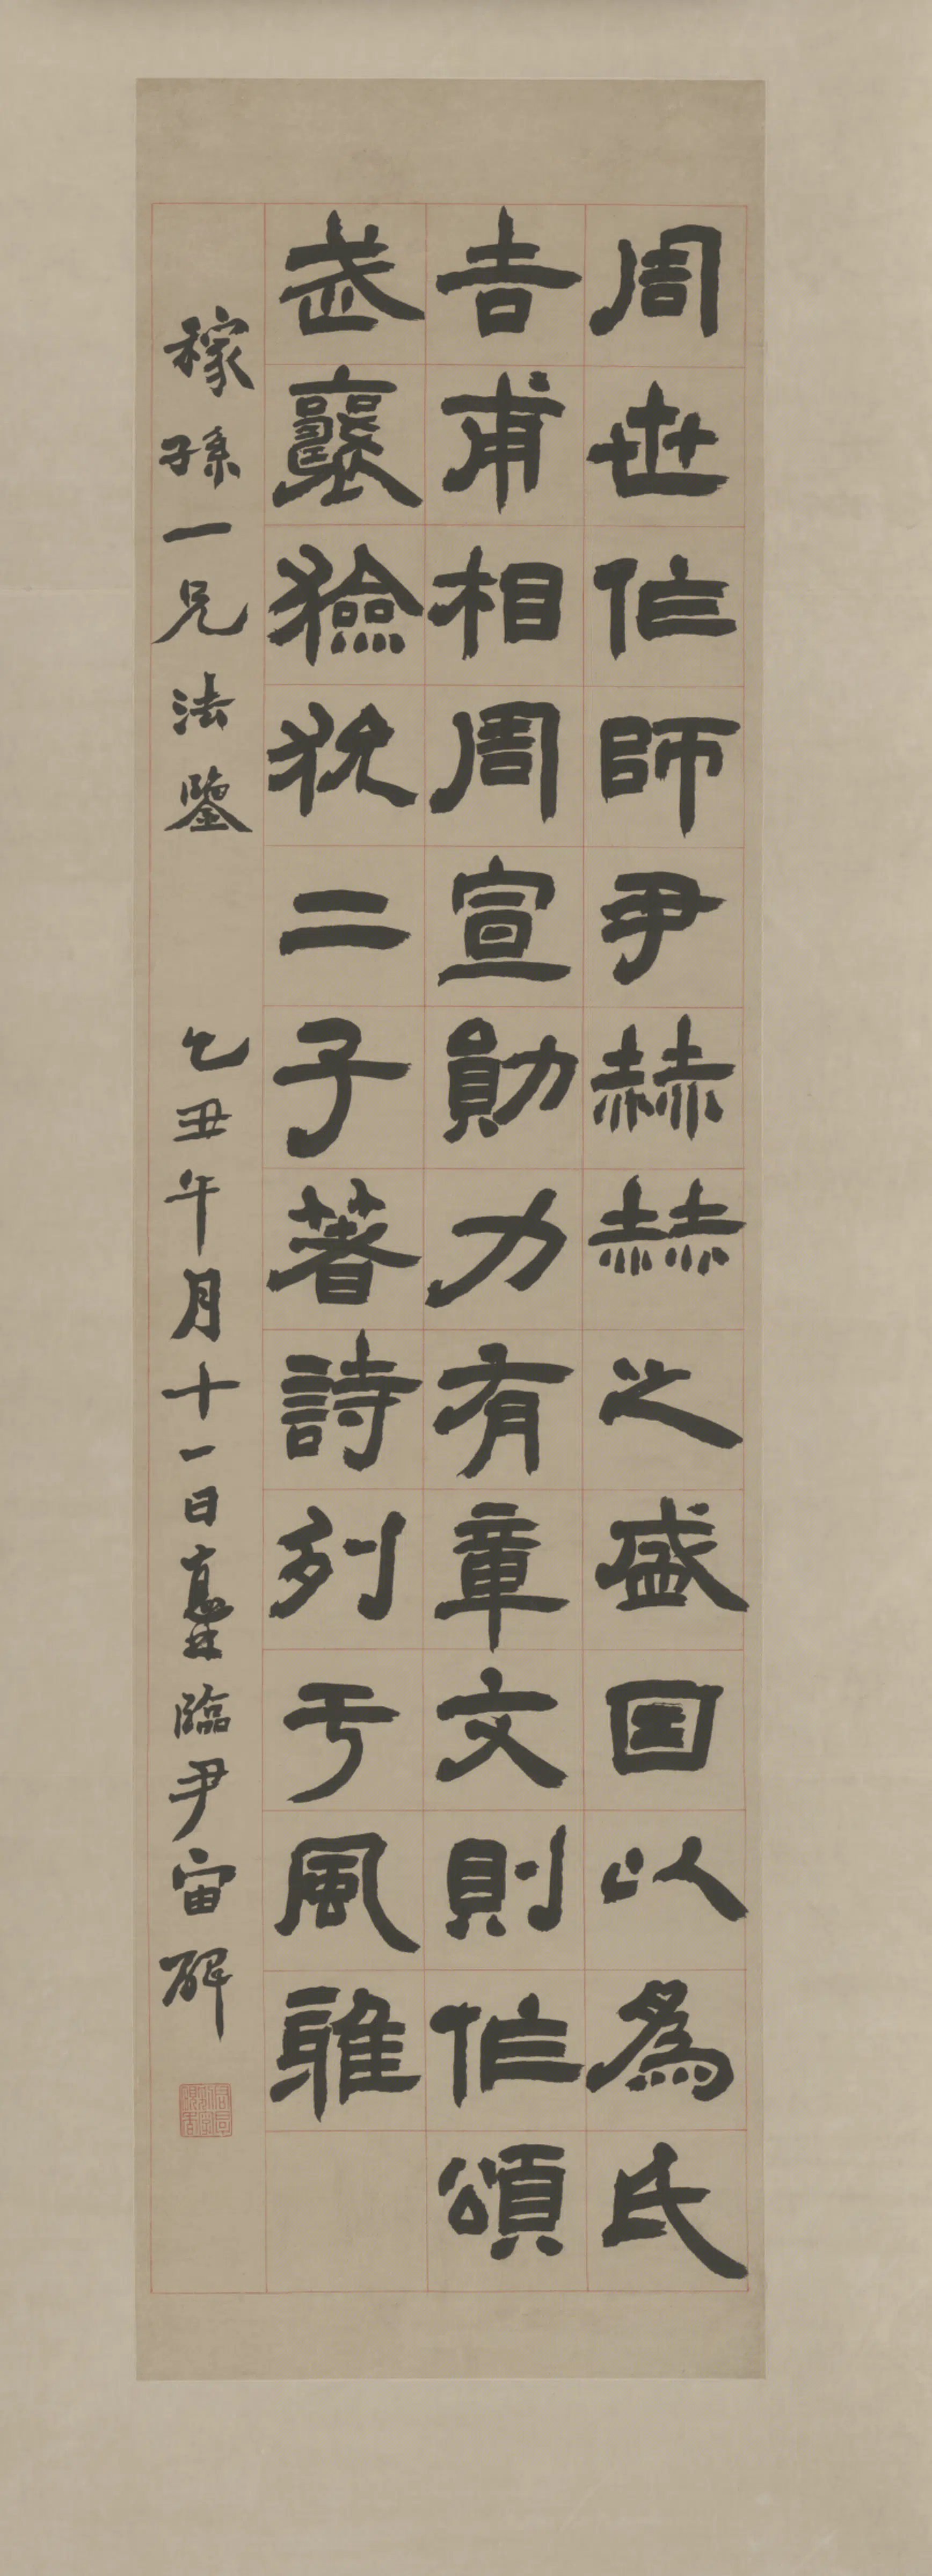 周世作師尹赫赫之盛因以為氏
吉甫相周宣勛力有章文則作頌
武襄獫狁二子著詩列于風雅
稼孫一兄法鑒 乙丑午月十一日 臨尹宙碑